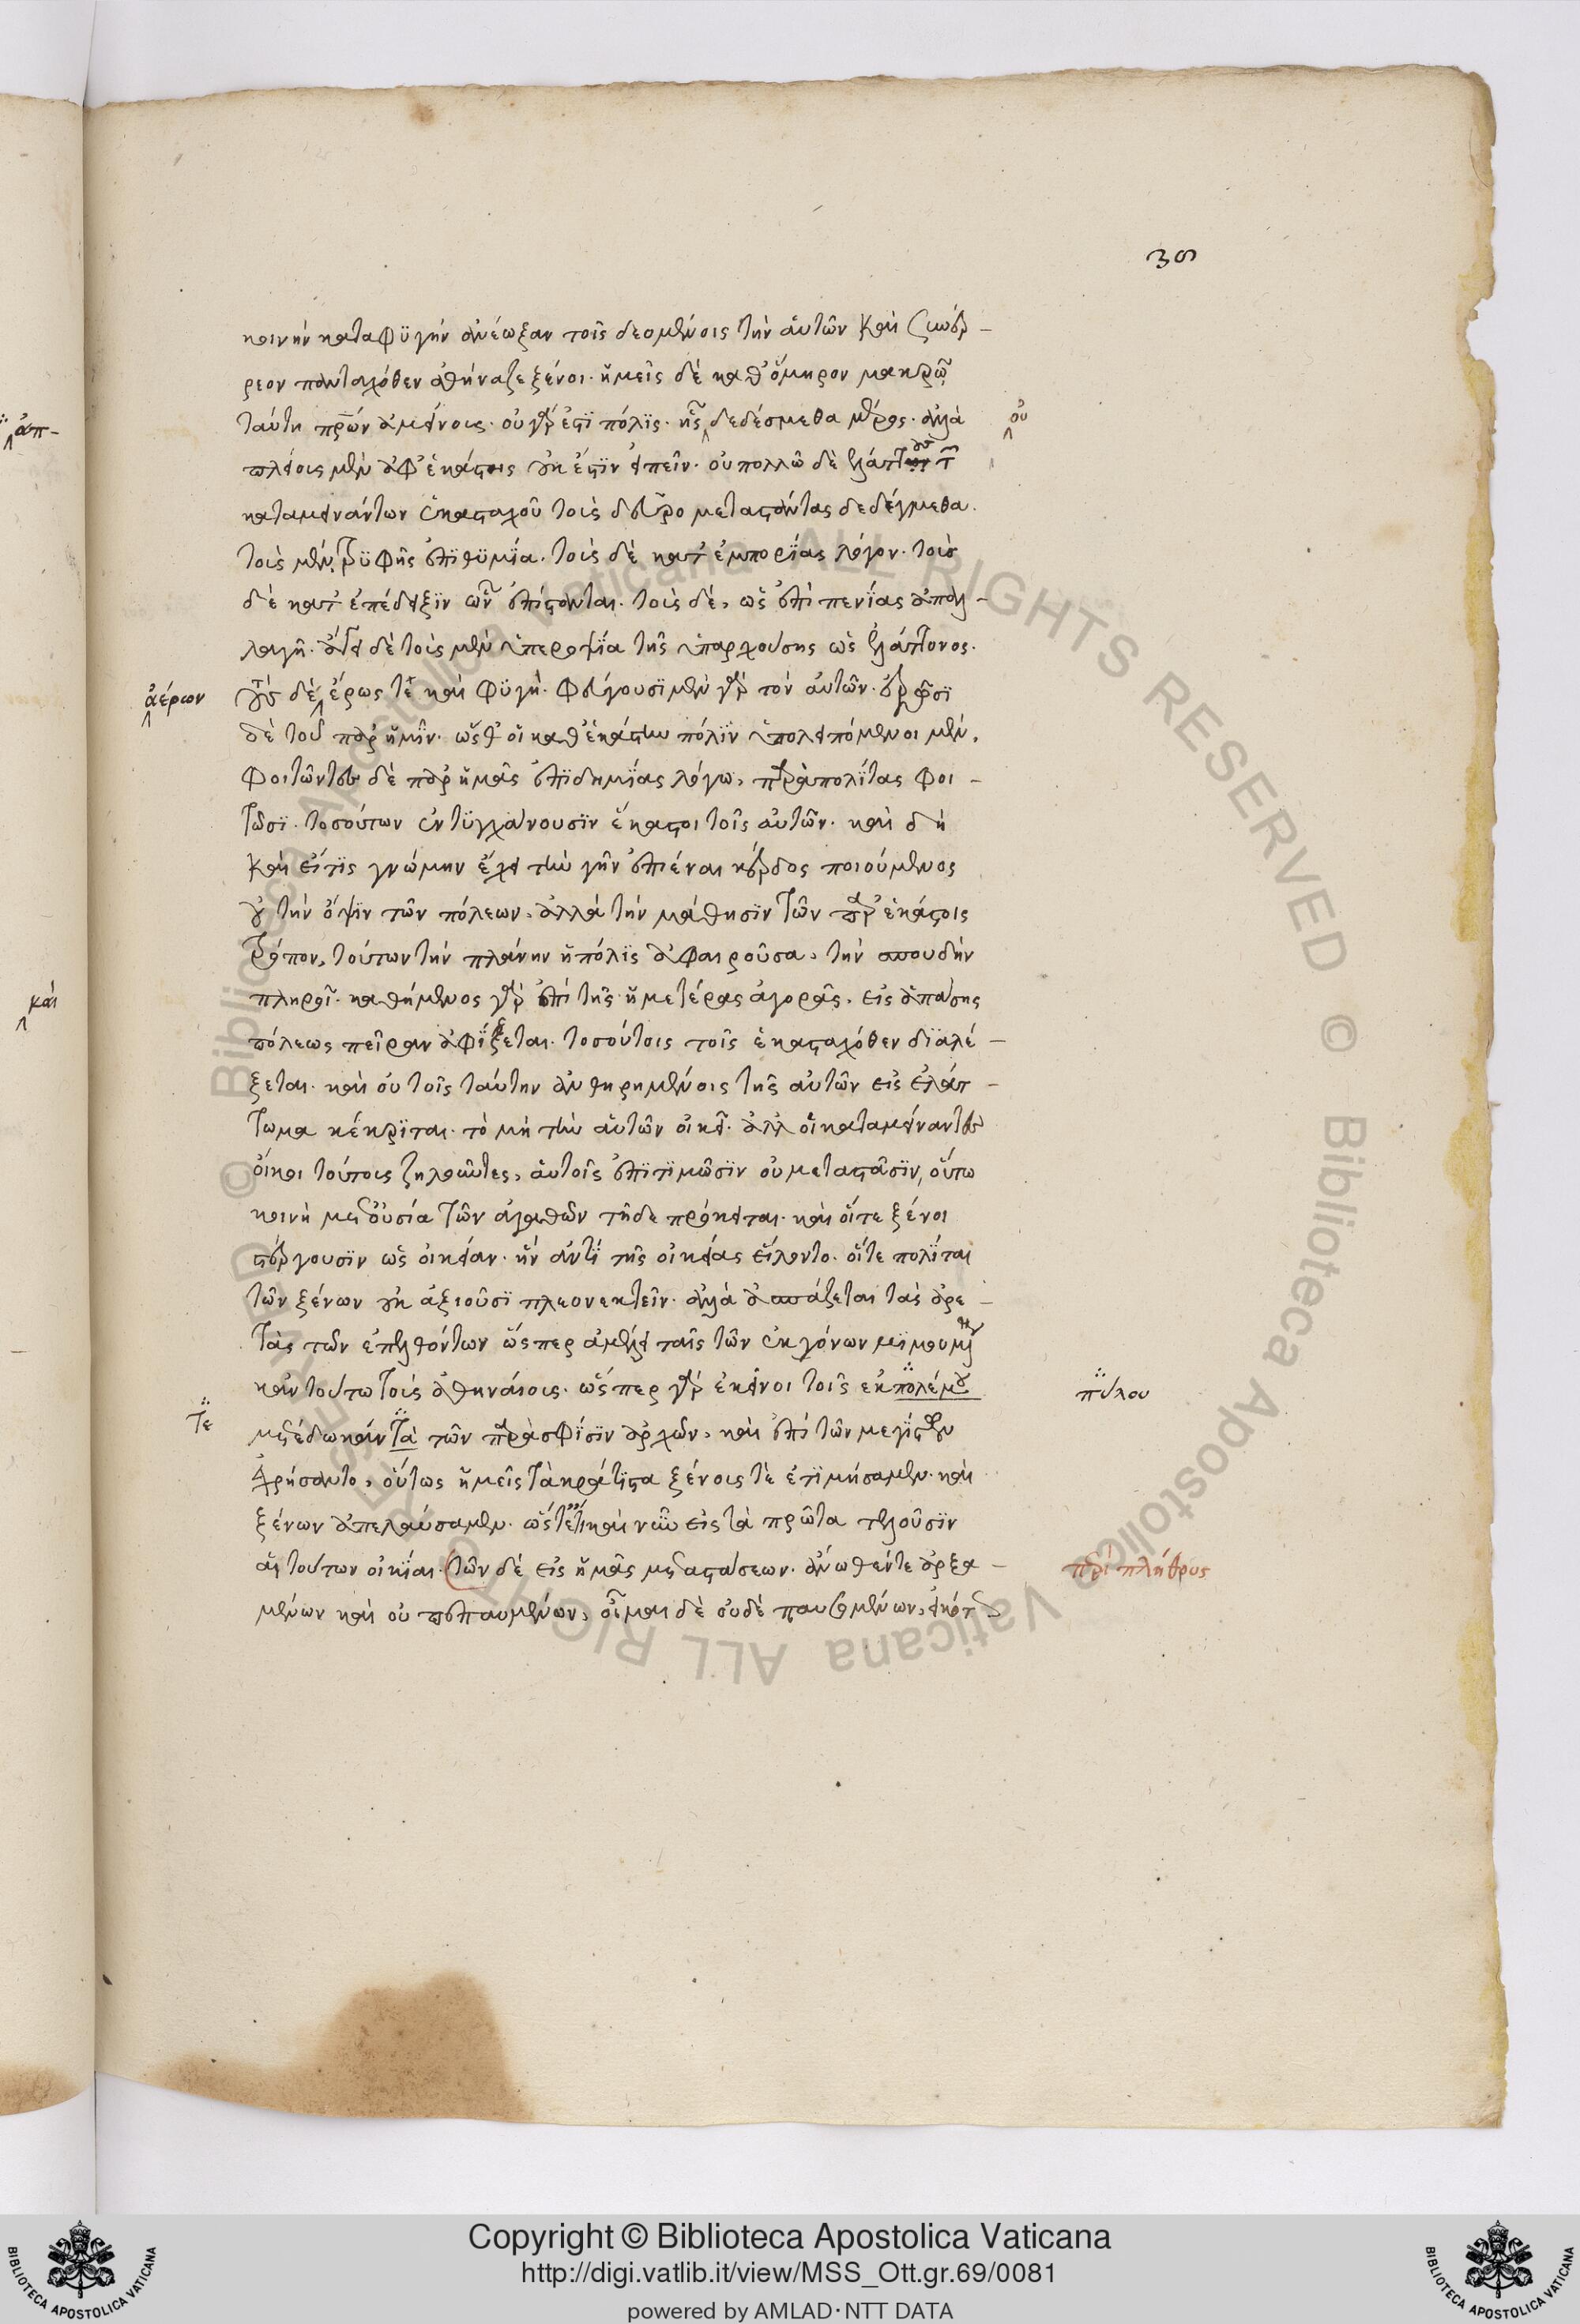 36
κοινὴν καταφϋγὴν ἀνέωξαν τοῖς δεομένοις τὴν ἁυτῶν καὶ συνέρ -
ρεον πανταχόθεν ἀθήναζε ξένοι. ἡμεῖς δὲ καθ' ὅμηρον μακρῶ
ταύτη πρῶν ἀμείνους. οὐ γάρ ἐστϊ πόλϊς. ἧς δεδέσμεθα μέρος. ἀλλὰ
οὐ
πλείους μὲν ἀφ' ἑκάστης οὐκ ἔστϊν εἰπεῖν. οὐ πολλῶ δὲ ἐλάττους τῶν
καταμεινάντων ἑκασταχοῦ τοὺς δεῦρο μεταστάντας δεδέγμεθα.
τοὺς μὲν τρϋφῆς ἐπϊθϋμΐα. τοὺς δὲ κατ' ἐμπορΐας λόγον. τοὺς
δὲ κατ' ἐπέδειξϊν ὧν ἐπίστανται. τοὺς δὲ, ὡς ἐπὶ πενΐας ἀπαλ -
λαγῆ. ἄγει δὲ τοὺς μὲν ὑπεροψΐα τῆς ὑπαρχούσης ὡς ἐλάττονος.
ἀέρων
τοὺς δὲ ἔρως τε καὶ φϋγή. φεύγουσϊ μὲν γὰρ τὸν αὑτῶν. ἐρῶσϊ
δὲ τοῦ παρ' ἡμῖν. ὥσθ' οἱ καθ' ἑκάστην πόλϊν ὑπολειπόμενοι μὲν,
φοιτῶντες δὲ παρ' ἡμᾶς ἐπϊδημΐας λόγω, παρὰ πολΐτας φοι -
τῶσϊ. τοσούτων ἐντϋγχάνουσϊν ἕκαστοι τοῖς αὑτῶν. καὶ δὴ
καὶ εἴ τϊς γνώμην ἔχει τὴν γῆν ἐπιέναι κέρδος ποιούμενος
οὐ τὴν ὄψϊν τῶν πόλεων, ἀλλὰ τὴν μάθησϊν τῶν παρ' ἑκάστοις
τρόπων, τούτων τὴν πλάνην ἡ πόλϊς ἀφαιροῦσα, τὴν σπουδὴν
πληροῖ. καθήμενος γὰρ ἐπὶ τῆς ἡμετέρας ἀγορᾶς, εἰς ἁπάσης
πόλεως πεῖραν ἀφΐξεται. τοσούτοις τοῖς ἑκασταχόθεν δϊαλέ -
ξεται. καὶ οὐ τοῖς ταύτην ἀνθηρημένοις τῆς αὑτῶν εἰς ἐλάτ -
τωμα κέκρϊται. τὸ μὴ τὴν ἁυτῶν οἰκεῖν. ἀλλ' οἱ καταμείναντες
οἴκοι τούτους ζηλοῦντες, ἁυτοῖς ἐπϊτϊμῶσϊν οὐ μεταστᾶσϊν, οὕτω
κοινὴ μετουσία τῶν ἀγαθῶν τῆδε πρόκειται. καὶ οἵ τε ξένοι
στέργουσϊν ὡς οἰκείαν. ἣν ἀντὶ τῆς οἰκείας εἵλοντο. οἵ τε πολῖται
τῶν ξένων οὐκ ἀξιοῦσϊ πλεονεκτεῖν. ἀλλὰ ἀσπάζεται τὰς ἀρε -
τὰς τῶν ἐπελθόντων ὥσπερ ἀμέλει ταῖς τῶν ἐκγόνων μϊμούμεθα
κἂν τούτω τοὺς ἀθηναίους. ὥσπερ γὰρ ἐκεῖνοι τοῖς ἐκ πολέμου
πύλου
τε
μετέδωκάν τὰ τῶν παρὰ σφΐσϊν ἀρχῶν, καὶ ἐπὶ τῶν μεγΐστων
ἐχρήσαντο, οὕτως ἡμεῖς τὰ κράτϊστα ξένους τὲ ἐτϊμήσαμεν. καὶ
ξένων ἀπελαύσαμεν. ὥστε ἔτι καὶ νῦν εἰς τὰ πρῶτα τελοῦσϊν
αἱ τούτων οἰκΐαι. τῶν δὲ εἰς ἡμᾶς μεταστάσεων. ἄνωθέν τε ἀρξα -
περὶ πλήθους
μένων καὶ οὐ πεπαυμένων, οἶμαι δὲ οὐδὲ παυσομένων, εἰκότως
ἀπ-
καὶ
Copyright © Biblioteca Apostolica Vaticana
http://digi.vatlib.it/view/MSS_Ott.gr.69/0081
powered by AMLAD·NTT DATA